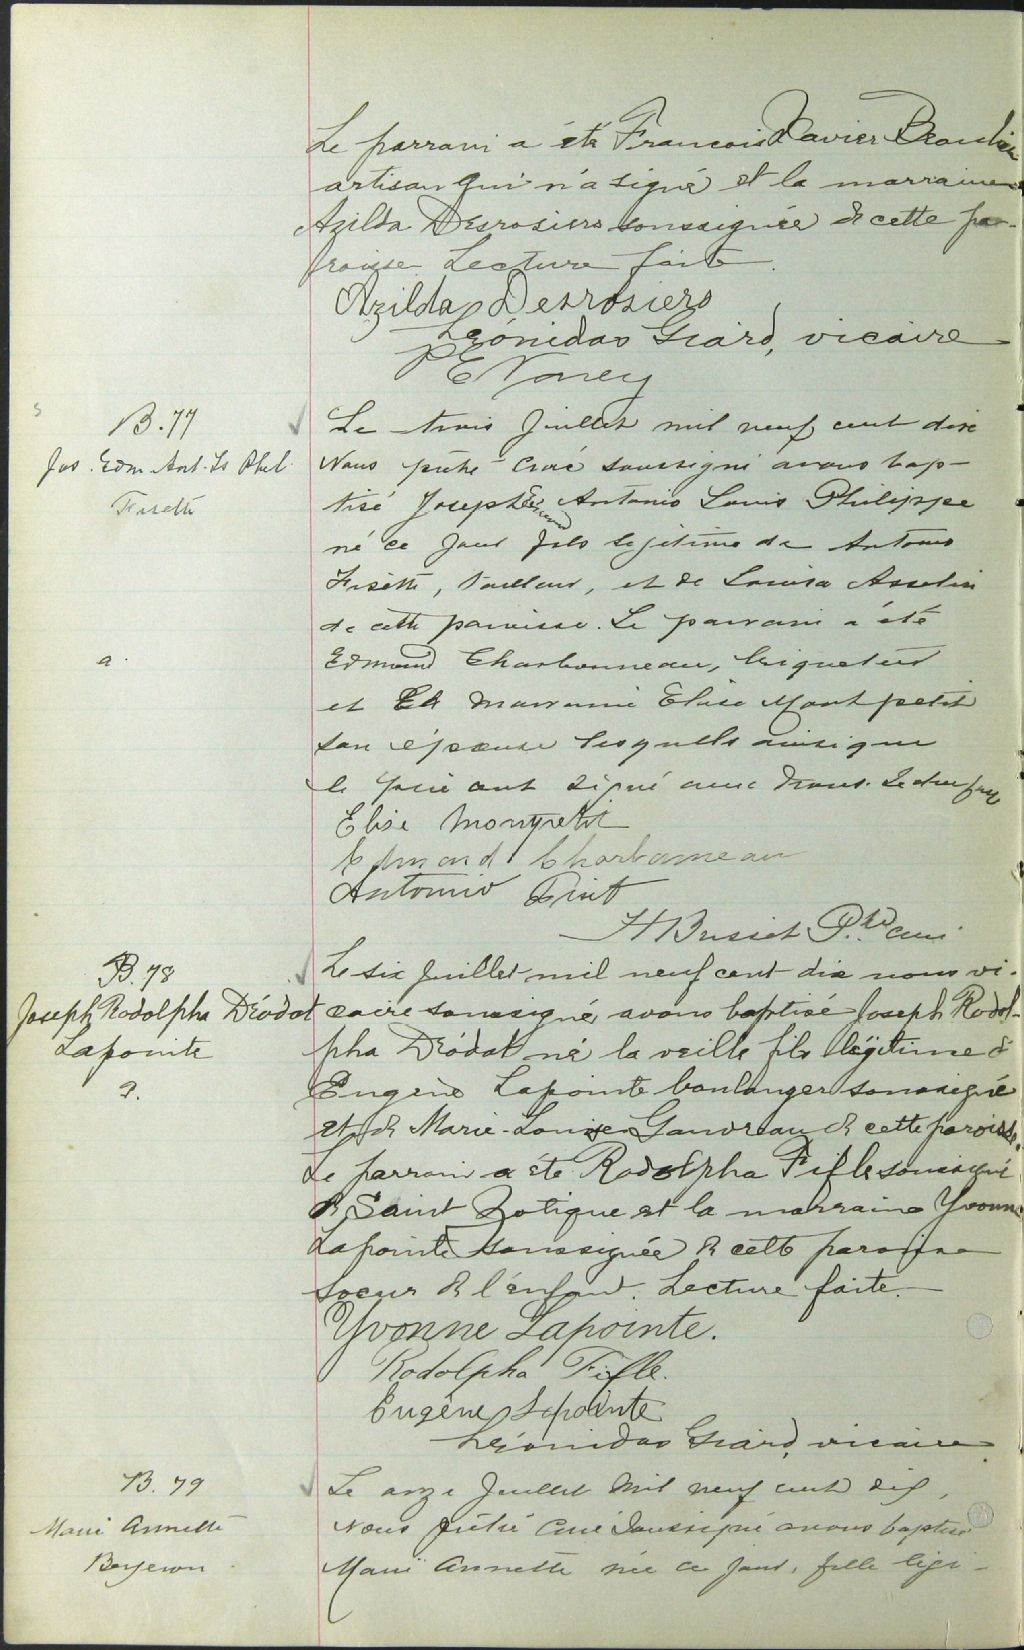 Le parrain a été François Xavier Beaulieu
artisan qui n'a signé et la marraine
Azilda Desrosiers soussignée de cette pa-
roisse. Lecture faite.
Azilda Desrosiers
Léonidas Giard, vicaire
B. 77
Jos. Edm. Ant. Ls Phil.
Fisette
Le trois Juillet mil neuf cent dix
Nous prêtre curé soussigné avons bap-
tisé Joseph Edmond Antonio Louis Philippe
né ce jour fils legitime de Antonio
Fisette, tailleur, et de Louisa Asselin
de cette paroisse. Le parrain a été
a.
Edmond Charbonneau, briqueteur
et la marraine Elise Montpetit
son épouse lesquels ainsi que
le père ont signé avec nous. Lecture faite
Elise Montpetit
Edmond Charbonneau
Antonio
Ptre curé
B. 78
Joseph Rodolpha Déodat
Lapointe
P.
Le six Juillet mil neuf cent dix nous vi-
caire soussigné avons baptisé Joseph Rodol-
pha Déodat né la veille fils légitime de
Eugène Lapointe boulanger soussigné
et de Marie-Louise Gaudreau de cette paroisse.
Le parrain a été Rodolpha Fifle soussigné
de Saint Zotique et la marraine Yvonne
Lapointe soussignée de cette paroisse
soeur de l'enfant. Lecture faite.
Yvonne Lapointe.
Rodolpha Fifle.
Eugène Lapointe
Léonidas Giard, vicaire
B. 79
Marie Annette
Bergeron
Le onze Juillet mil neuf cent dix,
Nous prêtre curé soussigné avons baptisé
Marie Annette née ce jour, fille légi-